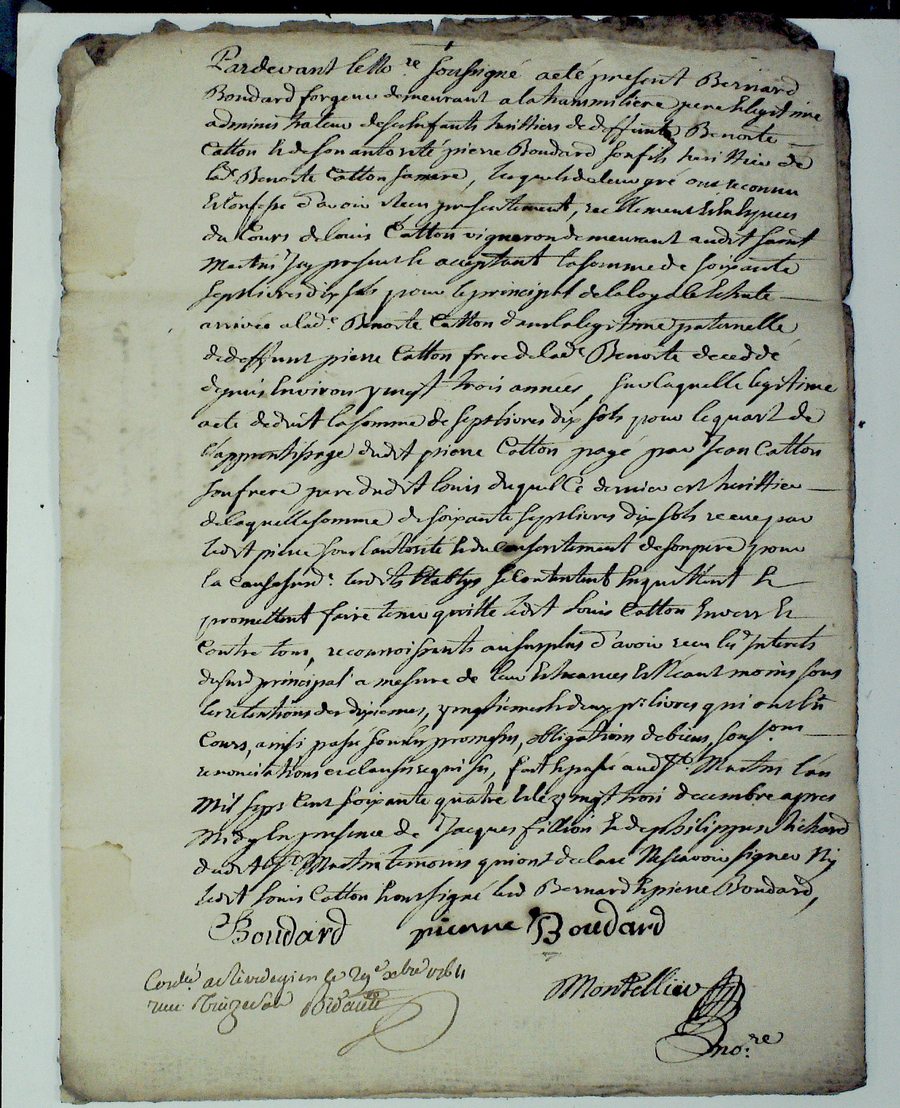 Pardevant le No.re soussigné a eté present Bernard
Boudard forgeur demeurant a la hammiliere pere & legitime
administrateur de ses enfants heritiers de deffunte Benoite
Catton & de son autorité pierre Boudard son fils heritier de
lad.e Benoite Catton sa mere, lesquels de leur gré ont reconnu
et confessé d'avoir reçu presentement, reellement & en especes
du Cours de Louis Catton vigneron demeurant audit saint
Martin present & aceptant la somme de soixante
sept livres dix sols pour le principal de la loyale echute
arrivée a lad.e Benoite Catton dans la legitime paternelle
de deffunt pierre Catton frere de lad.e Benoite decedé
depuis environ vingt trois années, sur laquelle legitime
a eté deduit la somme de sept livres dix sols pour le quart de
l'apprentissage dudit pierre Catton payé par Jean Catton
son frere pere dudit Louis duquel ce dernier est heritier
de laquelle somme de soixante sept livres dix sols reçue par
ledit pierre sous l'autorité & du consentement de son pere pour
la cause susd.e lesdits Boudard se contentent en quittent &
promettent faire tenir quitte ledit Louis Catton envers &
contre tous, reconnoissants au surplus d'avoir reçu les interets
dusud principal a mesure de leur echeances & Neant moins sous
les retentions des dixiemes, vingtiemes & deux p.r livres qui ont eu
Cours, ainsi passé sous les promesses, obligations de biens, soumissions
renonciations et clauses requises, fait & passé aud St Martin l'an
Mil sept cent soixante quatre & le vingt trois decembre apres
Midy en presence de Jacques fillion & de philippe Richard
dudit St Martin temoins qui ont declaré Ne scavoir signer Ny
ledit Louis Catton & ont signé led Bernard & pierre Boudard,
Boudard pierre Boudard
Conlé a le 29e xbre 1764
reçu treize sols
Montellier
no.re